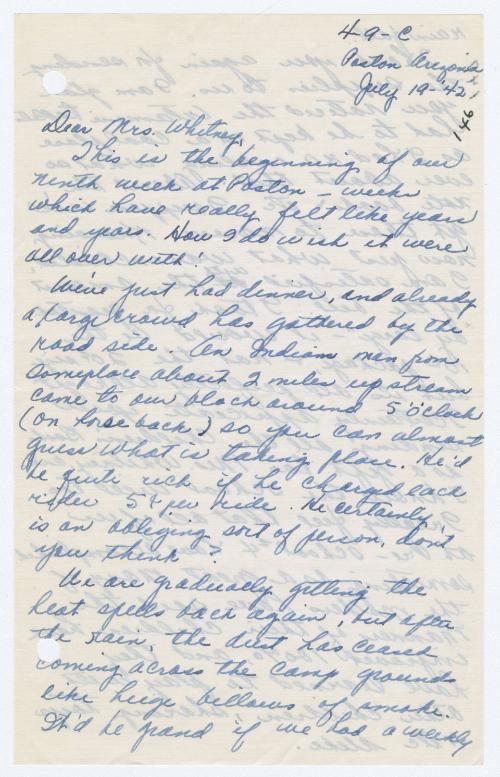 49-C
Poston Arizona
July 19-'42
146
Dear Mrs. Whitney,
This is the beginning of our
ninth week at Poston - weeks
which have really felt like years
and years. How I do wish it were
all over with!
We've just had dinner, and already
a large crowd has gathered by the
road side. An Indian man from
someplace about 2 miles up stream
came to our block around 5 o'clock
(on horse back) so you can almost
guess what is taking place. He'd
be quite rich if he charged each
rider 5¢ per ride. He certainly
is an obliging sort of person, don't
you think?
We are gradually getting the
heat spells back again, but after
the rain, the dust has ceased
coming across the camp grounds
like huge billows of smoke.
It'd be grand if we had a weekly